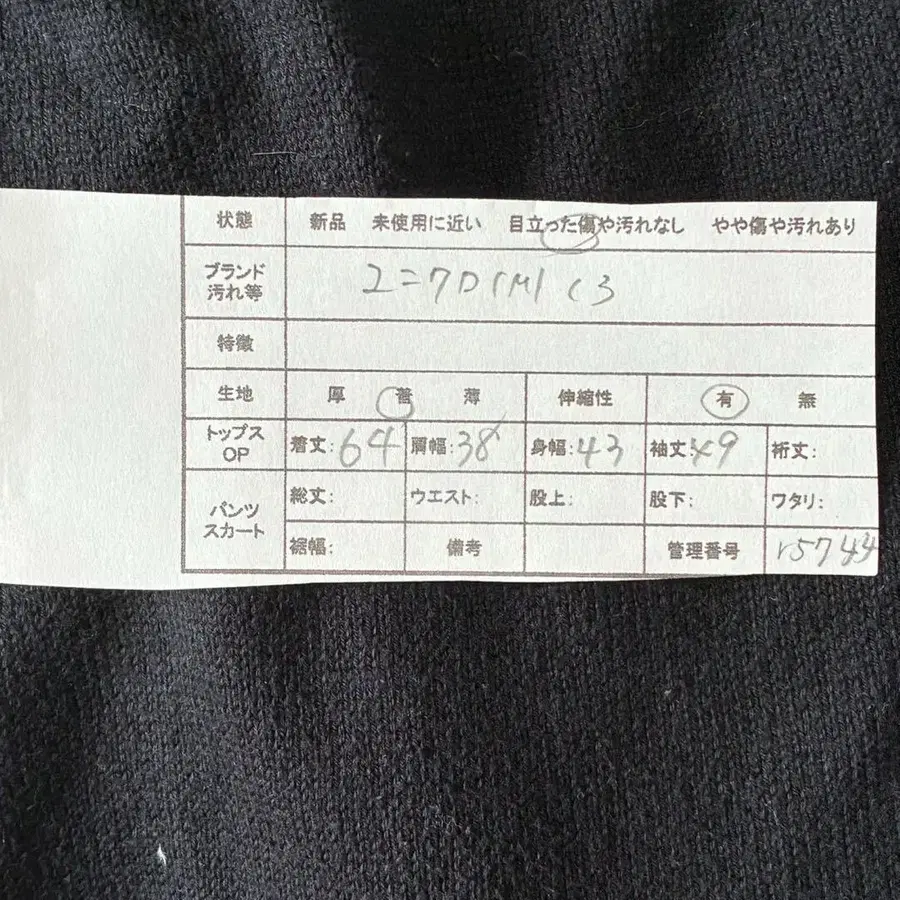 状態 新品 未使用に近い 目立った傷や汚れなし やや傷や汚れあり
ブランド
汚れ等
ユニクロ (M) くろ
特徴
生地 厚 普 薄 伸縮性 有 無
トップス
OP
着丈:64 肩幅:38 身幅:43 袖丈:49 裄丈:
パンツ
スカート
総丈: ウエスト: 股上: 股下: ワタリ:
裾幅: 備考 管理番号 r5744